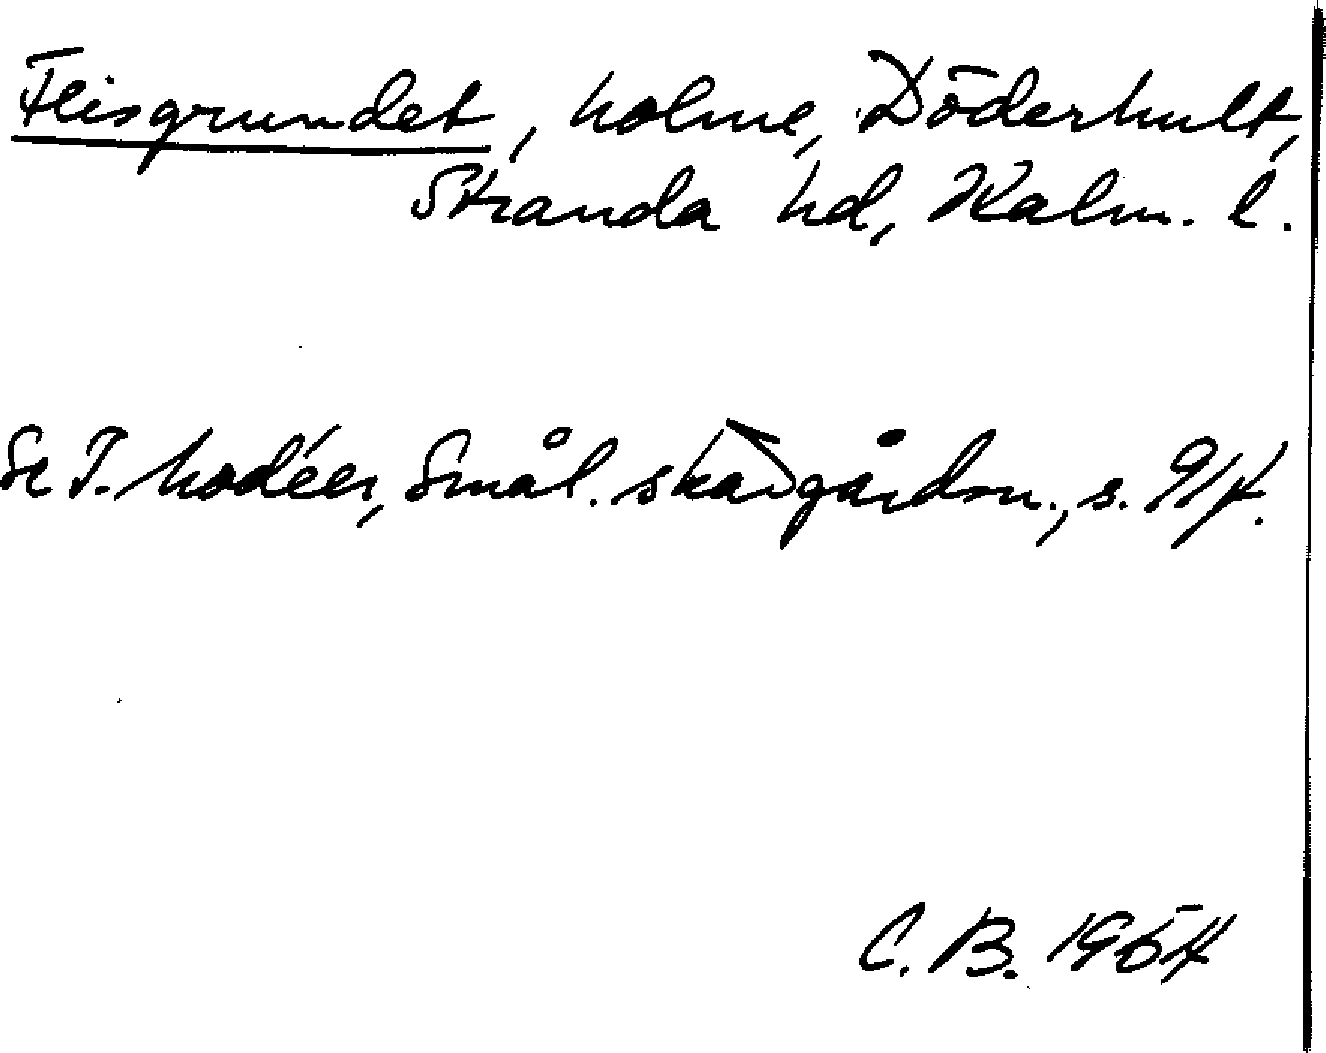 Flisgrundet, holme, Döderhult,
Stranda hd, Kalm. l.
Se I. Modéer, Smål. skärgårdsn., s. 91 f.
C. B. 1954